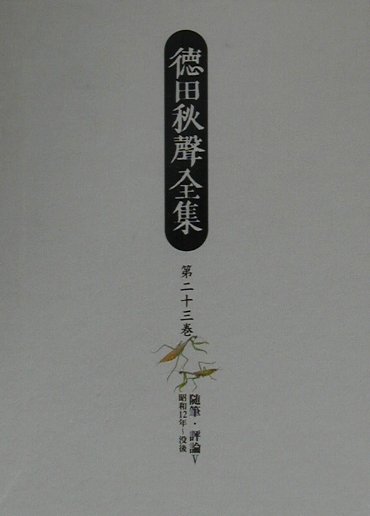 徳田秋聲全集
第二十三巻
随筆・評論Ⅴ
昭和12年~没後